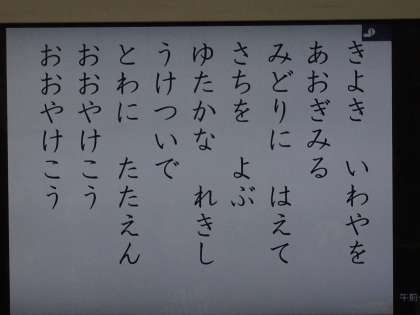 きよき　いわやを
あおぎみる
みどりに　はえて
さちを　よぶ
ゆたかな　れきし
うけついで
とわに　たたえん
おおやけこう
おおやけこう
午前